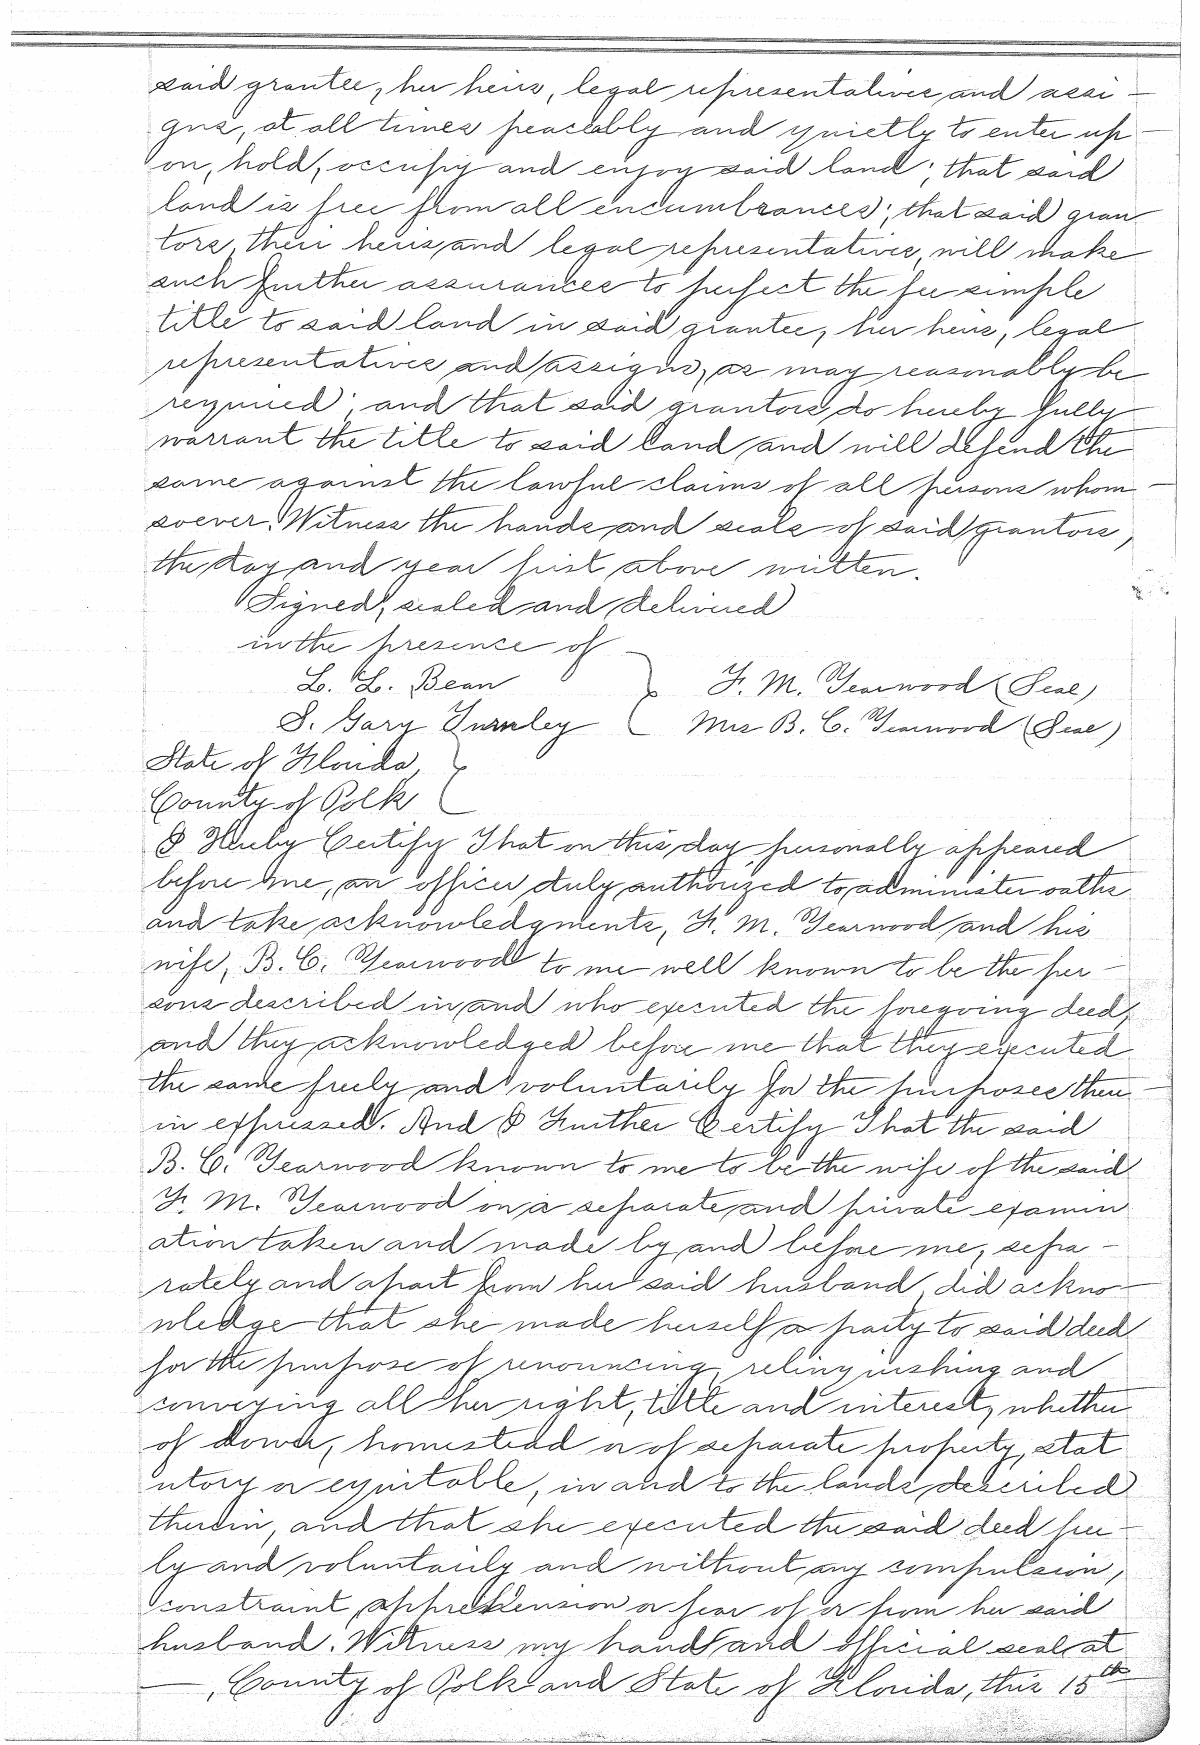 said grantee, her heirs, legal representatives and assi-
gns, at all times peaceably and quietly to enter up-
on, hold, occupy and enjoy said land; that said
land is free from all encumbrances; that said gran
tors, their heirs and legal representatives, will make
such further assurances to perfect the fee simple
title to said land in said grantee, her heirs, legal
representatives and assigns, as may reasonably be
required; and that said grantors do hereby fully
warrant the title to said land and will defend the
same against the lawful claims of all persons whom-
soever. Witness the hands and seals of said grantors,
the day and year first above written.
Signed, sealed and delivered
in the presence of
L. L. Bean F. M. Yearwood (Seal)
S. Gary Turnley Mrs B. C. Yearwood (Seal)
State of Florida,
County of Polk
I Hereby Certify That on this day personally appeared
before me, an officer duly authorized to administer oaths
and take acknowledgments, F. M. Yearwood and his
wife, B. C. Yearwood to me well known to be the per-
sons described in and who executed the foregoing deed,
and they acknowledged before me that they executed
the same freely and voluntarily for the purposes there-
in expressed. And I Further Certify That the said
B. C. Yearwood known to me to be the wife of the said
F. M. Yearwood on a separate and private examin
ation taken and made by and before me, sepa-
rately and apart from her said husband, did ackno-
wledge that she made herself a party to said deed
for the purpose of renouncing, relinquishing and
conveying all her right, title and interest, whether
of dower, homestead or of separate property, stat
utory or equitable, in and to the lands described
therein, and that she executed the said deed free-
ly and voluntarily and without any compulsion,
constraint, apprehension or fear of or from her said
husband. Witness my hand and official seal at
—, County of Polk and State of Florida, this 15th